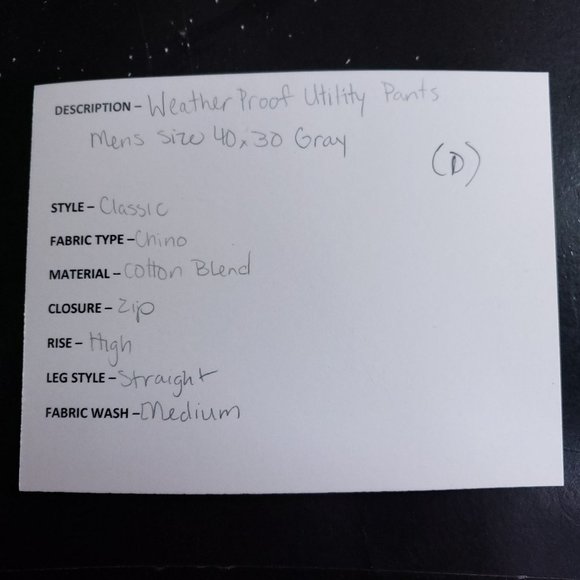 DESCRIPTION – Weather Proof Utility Pants
Mens Size 40x30 Gray
(D)
STYLE – Classic
FABRIC TYPE – Chino
MATERIAL – Cotton Blend
CLOSURE – Zip
RISE – High
LEG STYLE – Straight
FABRIC WASH – Medium